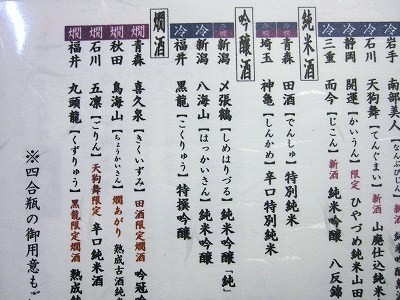 冷 岩手 南部美人【なんぶびじん】新酒 純米吟
冷 石川 天狗舞【てんぐまい】新酒 山廃仕込純米
冷 静岡 開運【かいうん】限定 ひやづめ純米山田
冷 三重 而今【じこん】新酒 純米吟醸 八反錦
純米酒
冷 燗 青森 田酒【でんしゅ】特別純米
燗 埼玉 神亀【しんかめ】辛口特別純米
吟醸酒
冷 燗 新潟 〆張鶴【しめはりづる】純米吟醸「純」
冷 新潟 八海山【はっかいさん】純米吟醸
冷 福井 黒龍【こくりゅう】特撰吟醸
燗酒
燗 青森 喜久泉【きくいずみ】田酒限定燗酒 吟冠吟
燗 秋田 鳥海山【ちょうかいさん】燗あがり 熟成古酒純
燗 石川 五凛【ごりん】天狗舞限定 辛口純米酒
燗 福井 九頭龍【くずりゅう】黒龍限定燗酒 熟成純
※四合瓶の御用意も